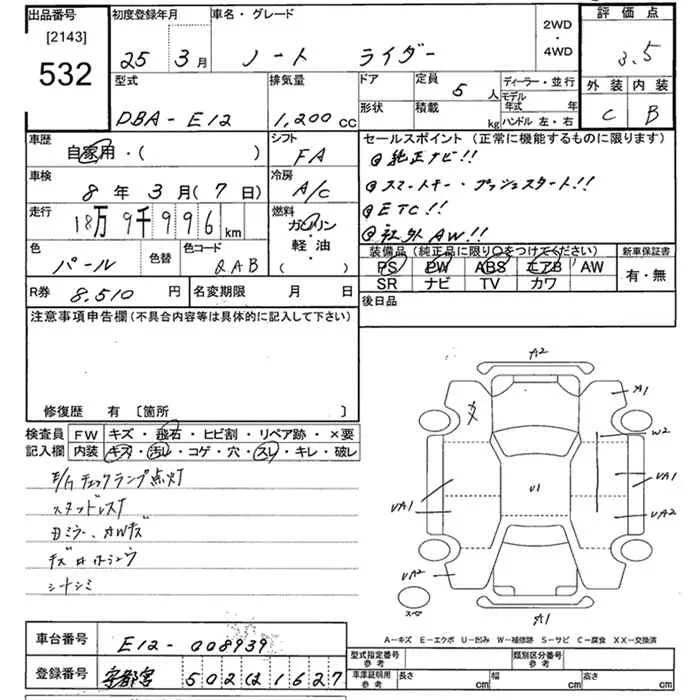 出品番号
[2143]
532
初度登録年月
25年 3月
車名・グレード
ノート ライダー
2WD
・
4WD
評価点
3.5
外装 内装
C B
型式
DBA-E12
排気量
1,200 cc
ドア
定員
5 人
形状
積載
kg
ディーラー・並行
モデル年式 年
ハンドル 左・右
車歴
自家用・( )
シフト
FA
車検
8年 3月(7日)
冷房
A/C
走行
18万9千996km
燃料
ガソリン
軽油・
( )
色
パール
色替
色コード
QAB
R券 8,510 円
名変期限 月 日
セールスポイント(正常に機能するものに限ります)
◎純正ナビ!!
◎スマートキー・プッシュスタート!!
◎ETC!!
◎社外AW!!
装備品(純正品に限り○をつけてください)
新車保証書
PS PW ABS エアB AW
SR ナビ TV カワ
有・無
後日品
注意事項申告欄(不具合内容等は具体的に記入して下さい)
修復歴 有〔箇所 〕
検査員
記入欄
FW キズ・飛石・ヒビ割・リペア跡・×要
内装 キズ・汚レ・コゲ・穴・スレ・キレ・破レ
E/Gチェックランプ点灯
スタッドレスT
シートシミ
A2
A1
W2
UA1
UA2
U1
UA1
UA2
A1
スペア
A-キズ E-エクボ U-凹み W-補修跡 S-サビ C-腐食 XX-交換済
車台番号 E12-008939
登録番号 宇都宮 502 1627
型式指定番号
参考
類別区分番号
参考
車庫証明用
参考
長さ cm
幅 cm
高さ cm